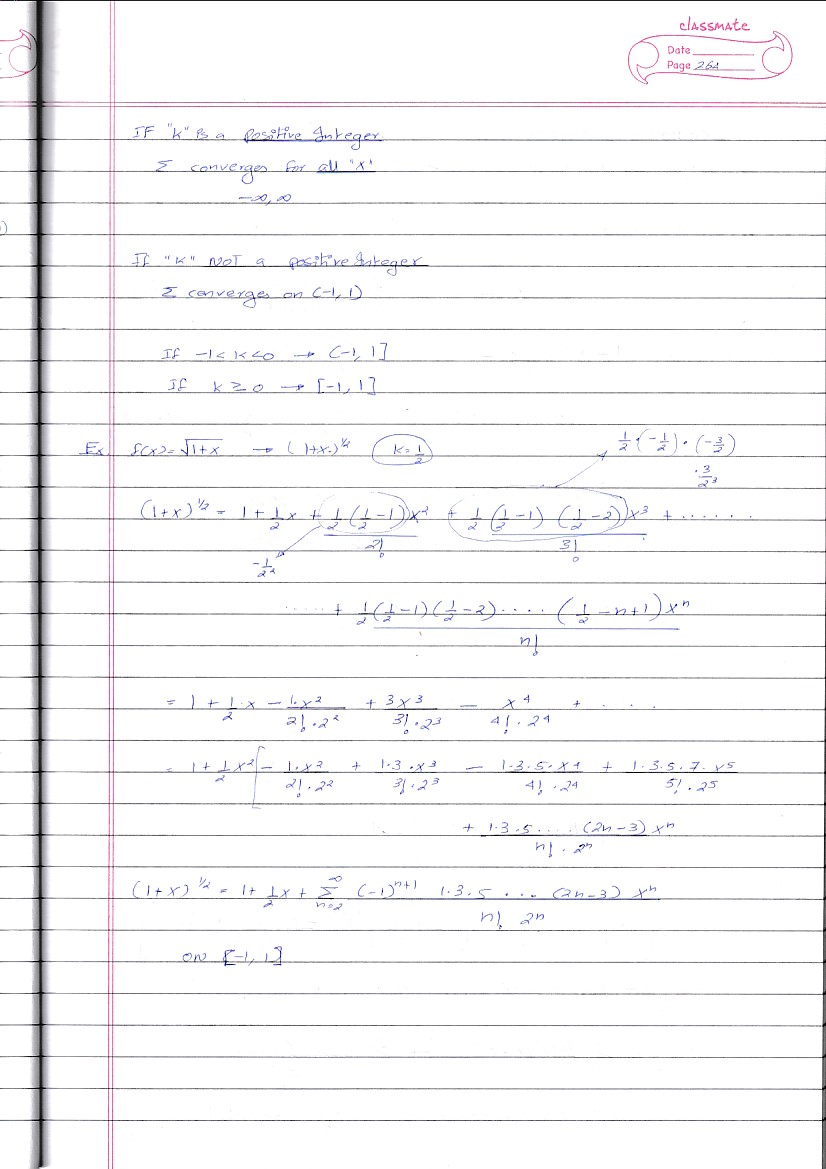 classmate
Date
Page 264
IF "K" is a positive Integer
Σ converges for all "x"
-∞, ∞
If "K" NOT a positive Integer
Σ converges on (-1, 1)
If -1 < K < 0 → (-1, 1]
If K ≥ 0 → [-1, 1]
Ex. f(x) = √1+x → (1+x)^1/2 K = 1/2
1/2 · (-1/2) · (-3/2)
· 3/2^3
(1+x)^1/2 = 1 + 1/2 x + 1/2 (1/2 - 1) x^2 / 2! + 1/2 (1/2 - 1) (1/2 - 2) x^3 / 3! + ........
-1/2^2
..... + 1/2 (1/2 - 1) (1/2 - 2) .... (1/2 - n+1) x^n / n!
= 1 + 1/2 · x - 1·x^2 / 2! · 2^2 + 3x^3 / 3! · 2^3 - x^4 / 4! · 2^4 + . . .
= 1 + 1/2 x^2 [ - 1·x^2 / 2! · 2^2 + 1·3·x^3 / 3! · 2^3 - 1·3·5·x^4 / 4! · 2^4 + 1·3·5·7·x^5 / 5! · 2^5
+ 1·3·5 .... (2n-3) x^n / n! · 2^n
(1+x)^1/2 = 1 + 1/2 x + ∞ Σ n=2 (-1)^n+1 1·3·5 .... (2n-3) x^n / n! 2^n
on [-1, 1]